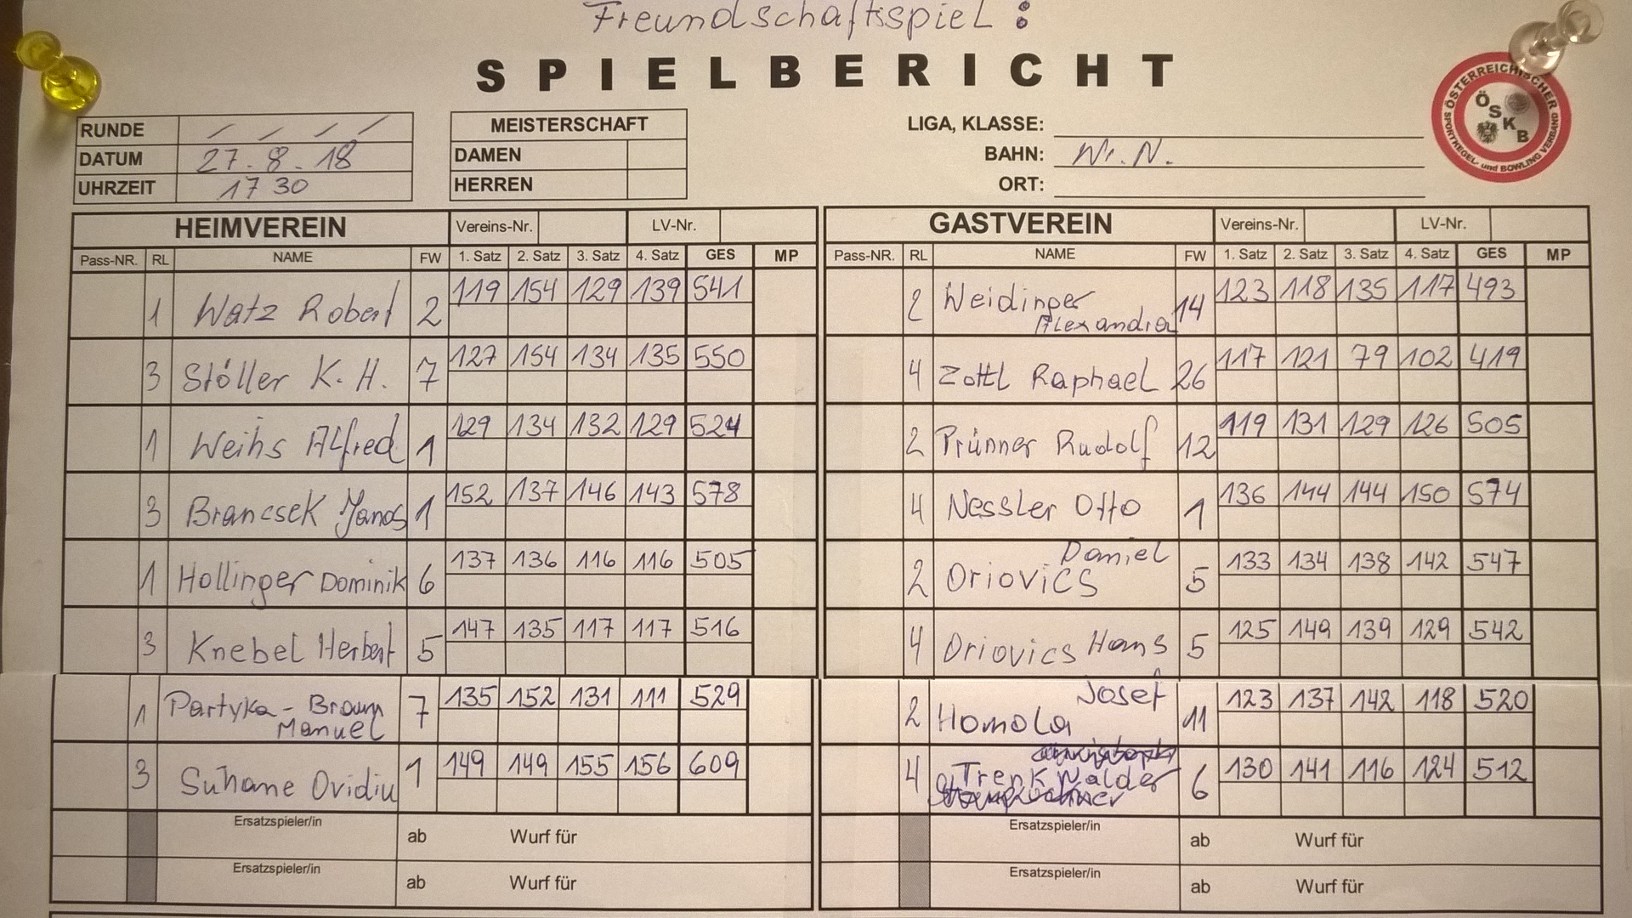 Freundschaftsspiel:
SPIELBERICHT
RUNDE
DATUM 27.8.18
UHRZEIT 17 30
MEISTERSCHAFT
DAMEN
HERREN
LIGA, KLASSE:
BAHN: Wr. N.
ORT:
ÖSTERREICHISCHER SPORTKEGEL- und BOWLING VERBAND
ÖSKB
HEIMVEREIN Vereins-Nr. LV-Nr.
Pass-NR. RL NAME FW 1. Satz 2. Satz 3. Satz 4. Satz GES MP
1 Watz Robert 2 119 154 129 139 541
3 Stöller K. H. 7 127 154 134 135 550
1 Weihs Alfred 1 129 134 132 129 524
3 Brancsek Janos 1 152 137 146 143 578
1 Hollinger Dominik 6 137 136 116 116 505
3 Knebel Herbert 5 147 135 117 117 516
1 Partyka - Braun Manuel 7 135 152 131 111 529
3 Suhane Ovidiu 1 149 149 155 156 609
Ersatzspieler/in ab Wurf für
Ersatzspieler/in ab Wurf für
GASTVEREIN Vereins-Nr. LV-Nr.
Pass-NR. RL NAME FW 1. Satz 2. Satz 3. Satz 4. Satz GES MP
2 Weidinger Alexandra 14 123 118 135 117 493
4 Zottl Raphael 26 117 121 79 102 419
2 Prünner Rudolf 12 119 131 129 126 505
4 Nessler Otto 1 136 144 144 150 574
2 Oriovics Daniel 5 133 134 138 142 547
4 Oriovics Hans 5 125 149 139 129 542
2 Homola Josef 11 123 137 142 118 520
4 Trenkwalder 6 130 141 116 124 512
Ersatzspieler/in ab Wurf für
Ersatzspieler/in ab Wurf für